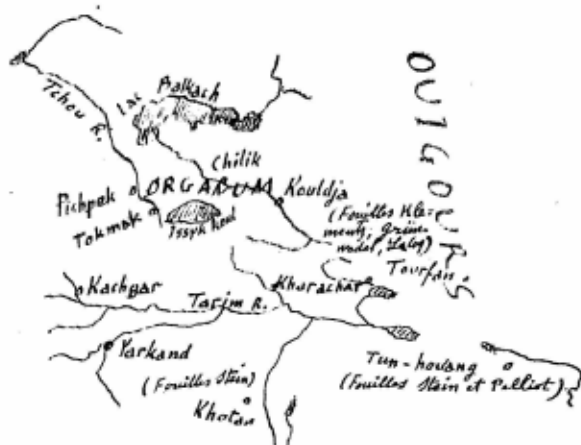 OUIGOURS
Tchou R.
Lac Balkach
Chilik
Pichpek
ORGANUM
Kouldja
Tokmak
Issyk Koul
(Fouilles Kle-
mentz, Grün-
wedel, Lecoq)
Tourfan
Kachgar
Tarim R.
Kharachar
Yarkand
(Fouilles Stein)
Khotan
Tun-houang
(Fouilles Stein et Pelliot)